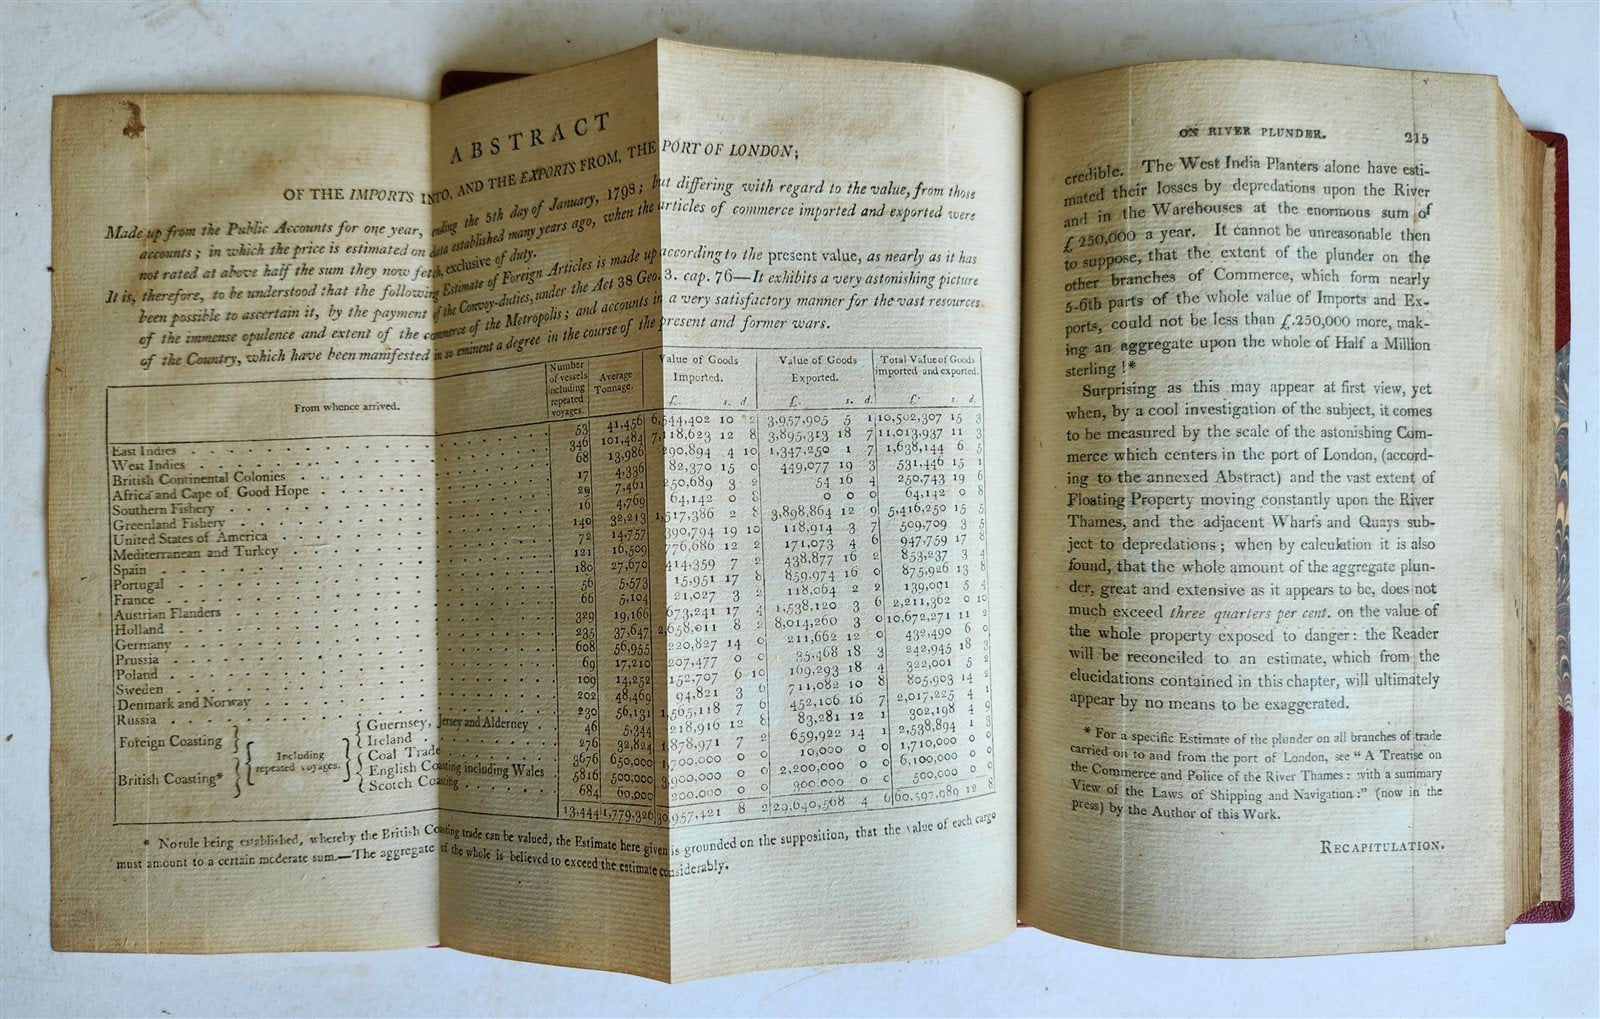 ABSTRACT
OF THE IMPORTS INTO, AND THE EXPORTS FROM, THE PORT OF LONDON;
Made up from the Public Accounts for one year, ending the 5th day of January, 1798; but differing with regard to the value, from those
accounts; in which the price is estimated on data established many years ago, when the articles of commerce imported and exported were
not rated at above half the sum they now fetch, exclusive of duty.
It is, therefore, to be understood that the following Estimate of Foreign Articles is made up according to the present value, as nearly as it has
been possible to ascertain it, by the payment of the Convoy-duties, under the Act 38 Geo. 3. cap. 76—It exhibits a very astonishing picture
of the immense opulence and extent of the commerce of the Metropolis; and accounts in a very satisfactory manner for the vast resources
of the Country, which have been manifested in so eminent a degree in the course of the present and former wars.
From whence arrived. Number of vessels including repeated voyages. Average Tonnage. Value of Goods Imported. Value of Goods Exported. Total Value of Goods imported and exported.
£. s. d. £. s. d. £. s. d.
East Indies 53 41,456 6,544,402 10 2 3,957,905 5 1 10,502,307 15 3
West Indies 346 101,484 7,118,623 12 8 3,895,313 18 7 11,013,937 11 3
British Continental Colonies 68 13,986 290,894 4 10 1,347,250 1 7 1,638,144 6 5
Africa and Cape of Good Hope 17 4,336 82,370 15 0 449,077 19 3 531,446 15 1
Southern Fishery 29 7,461 250,689 3 2 54 16 4 250,743 19 6
Greenland Fishery 16 4,769 64,142 0 8 0 0 0 64,142 0 8
United States of America 140 32,213 1,517,386 2 8 3,898,864 12 9 5,416,250 15 5
Mediterranean and Turkey 72 14,757 390,794 19 10 118,914 3 7 509,709 3 5
Spain 121 16,509 776,686 12 2 171,073 4 6 947,759 17 8
Portugal 180 27,670 414,359 7 2 438,877 16 2 853,237 3 4
France 56 5,573 15,951 17 8 859,974 16 0 875,926 13 8
Austrian Flanders 66 5,104 21,027 3 2 118,064 2 2 139,091 5 4
Holland 329 19,166 673,241 17 4 1,538,120 3 6 2,211,362 0 10
Germany 235 37,647 2,658,011 8 2 8,014,260 3 0 10,672,271 11 2
Prussia 608 56,955 220,827 14 0 211,662 12 0 432,490 6 0
Poland 69 17,210 207,477 0 0 35,468 18 3 242,945 18 3
Sweden 109 14,252 152,707 6 10 169,293 18 4 322,001 5 2
Denmark and Norway 202 48,469 94,821 3 6 711,082 10 8 805,903 14 2
Russia 230 56,131 1,565,118 7 6 452,106 16 7 2,017,225 4 1
Foreign Coasting Including repeated voyages. Guernsey, Jersey and Alderney 46 5,344 218,916 12 8 83,281 12 1 302,198 4 9
Ireland 276 32,824 1,878,971 7 2 659,922 14 1 2,538,894 1 3
British Coasting* Coal Trade 3676 650,000 1,700,000 0 0 10,000 0 0 1,710,000 0 0
English Coasting including Wales 5816 500,000 3,900,000 0 0 2,200,000 0 0 6,100,000 0 0
Scotch Coasting 684 60,000 200,000 0 0 300,000 0 0 500,000 0 0
13,444 1,779,326 30,957,421 8 2 29,640,568 4 6 60,597,989 12 8
* No rule being established, whereby the British Coasting trade can be valued, the Estimate here given is grounded on the supposition, that the value of each cargo
must amount to a certain moderate sum.—The aggregate of the whole is believed to exceed the estimate considerably.
ON RIVER PLUNDER. 215
credible. The West India Planters alone have esti-
mated their losses by depredations upon the River
and in the Warehouses at the enormous sum of
£250,000 a year. It cannot be unreasonable then
to suppose, that the extent of the plunder on the
other branches of Commerce, which form nearly
5-6th parts of the whole value of Imports and Ex-
ports, could not be less than £.250,000 more, mak-
ing an aggregate upon the whole of Half a Million
sterling!*
Surprising as this may appear at first view, yet
when, by a cool investigation of the subject, it comes
to be measured by the scale of the astonishing Com-
merce which centers in the port of London, (accord-
ing to the annexed Abstract) and the vast extent of
Floating Property moving constantly upon the River
Thames, and the adjacent Wharfs and Quays sub-
ject to depredations; when by calculation it is also
found, that the whole amount of the aggregate plun-
der, great and extensive as it appears to be, does not
much exceed three quarters per cent. on the value of
the whole property exposed to danger: the Reader
will be reconciled to an estimate, which from the
elucidations contained in this chapter, will ultimately
appear by no means to be exaggerated.
* For a specific Estimate of the plunder on all branches of trade
carried on to and from the port of London, see "A Treatise on
the Commerce and Police of the River Thames: with a summary
View of the Laws of Shipping and Navigation:" (now in the
press) by the Author of this Work.
RECAPITULATION.